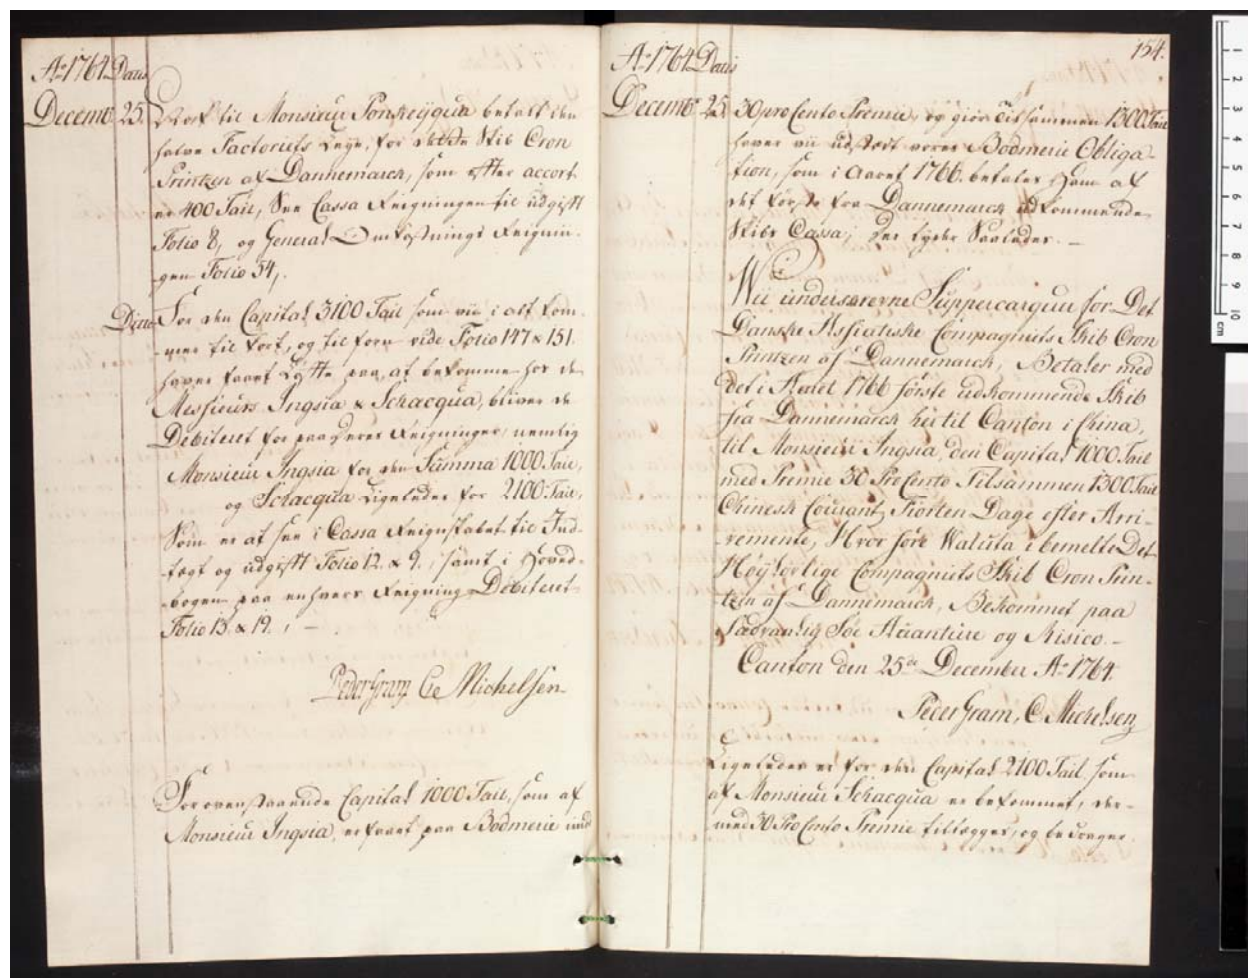 Ao 1764. Datis
Decembr 25. Blev til Monsieur Ponkeyqua betalt den
halve Factoriets Leye, for dette Skib Cron
Printzen af Dannemarck, som efter accort
er 400 Tail, See Cassa Reigningen til udgift
Folio 8, og General Omkostnings Reignin-
gen Folio 54,.
Dito For den Capital 3100 Tail som vii i alt kom-
mer til kort, og til forn vide Folio 147 & 151.
haver faaet Løfte paa, at bekomme hos de
Messieurs Ingsia & Schacqua, bliver de
Debiteret for paa deres Reigninger, nemlig
Monsieur Ingsia for den Summa 1000 Tail,
og Schacqua Ligeledes for 2100 Tail,
Som er at see i Cassa Reignskabet til Ind-
tægt og udgift Folio 12. & 9., samt i Hoved-
bogen paa enhvers Reigning Debiteret
Folio 13. & 19. , —
Peder Gram Ce Michelsen
For ovenstaaende Capital 1000 Tail, som af
Monsieur Ingsia, er faaet paa Bodmerie imod
154.
Ao 1764. Datis
Decembr 25. 30 pro Cento Premie, og giør tilsammen 1300 Tail
haver vii udstædt vores Bodmerie Obliga-
tion, som i Aaret 1766. betales ham af
det første fra Dannemarck udkommende
Skibs Cassa, der lyder Saaledes. —
Wii underskrevne Suppercarguer for Det
Danske Assiatiske Compagniets Skib Cron
Printzen af Dannemarck, Betaler med
det i Aaret 1766 første udkommende Skib
fra Dannemarck hertil Canton i China,
til Monsieur Ingsia, den Capital 1000 Tail
med Premie 30 Pro Cento Tilsammen 1300 Tail
Chinesk Courant, Fiorten Dage efter Arri-
vemente, Hvor fore Waluta i bemelte Det
Høylovlige Compagniets Skib Cron Prin-
tzen af Dannemarck, Bekommet paa
Sædvanlig Søe Avanture og Risico. —
Canton den 25de December Ao 1764.
Peder Gram, C. Michelsen,
Ligeledes er for den Capital 2100 Tail som
af Monsieur Schacqua er bekommet, der-
med 30 Pro Cento Premie tillægges, og bedrager